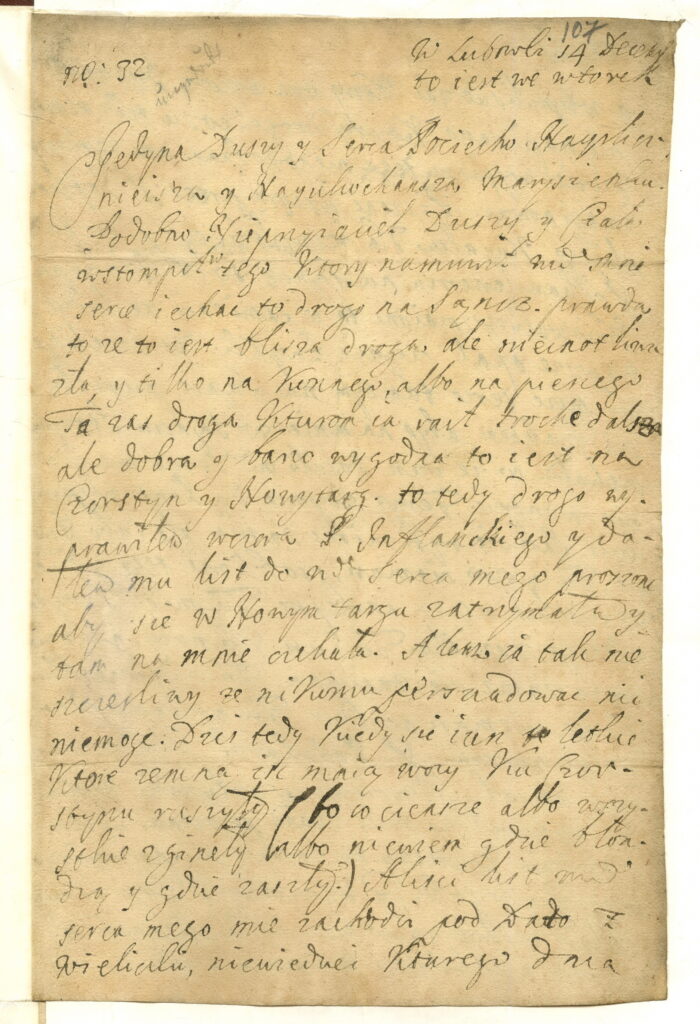 107
no: 32
W Lubowli 14 Decemb
to iest we wtorek
Jedyna Duszy y Serca Pociecho Nayslicz-
nieisza y Nayukochansza Marysienku.
Podobno Nieprzyiaciel Duszy y Ciała
wstompił w tego Ktory namuwił
serce iechac to drogo na Sącz. prawda
to ze to iest blisza droga ale niecnotliwa
zła y tilko na Konnego albo na piesego
Ta zas droga Kturom ia rait troche dalsza
ale dobra y barzo wygodna to iest na
Czorstyn y Nowytarg. to tedy drogo wy-
prawiłem wczora P. Inflanckiego y da-
łem mu list do serca mego proszonc
aby sie w Nowym targu zatrzymała y
tam na mnie czekała. Alem ia tak nie
szczesliwy ze nikomu perszuadowac nic
niemoge. Dzis tedy Kiedy sie iuz te letkie
Ktore zemną maią wozy Ku Czor-
stynu ruszyły (bo co ciensze albo wszy-
stkie zgineły albo niewiem gdzie błon-
dzą y gdzie zaszły.) Alisci list
serca mego mie zachodzi pod Dato z
Wieliczki, niewiedziec Kturego dnia